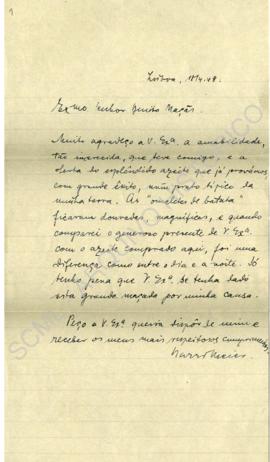 1
Lisboa, 18/4/49.
Exmo Senhor Benito Maçãs.
Muito agradeço a V. Exª. a amabilidade,
tão imerecida, que teve comigo, e a
oferta do esplêndido azeite que já provámos
com grande êxito, num prato típico da
minha terra. As "omeletes de batata"
ficaram douradas, magníficas, e quando
comparei o generoso presente de V. Exª.
com o azeite comprado aqui, foi uma
diferença como entre o dia e a noite. Só
tenho pena que V. Exª. se tenha dado
esta grande maçada por minha causa.
Peço a V. Exª queira dispôr de mim e
receber os meus mais respeitosos cumprimentos.